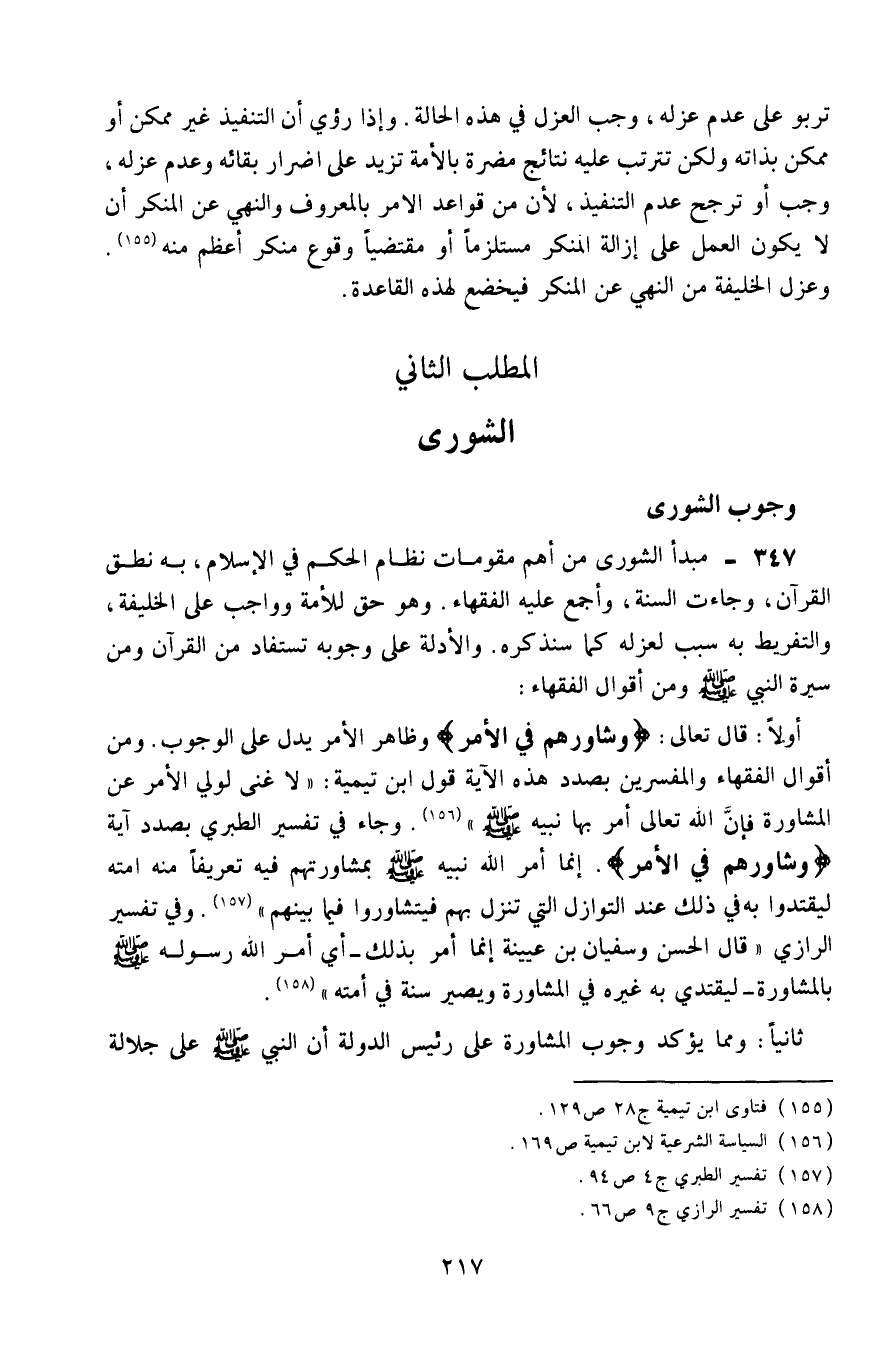 تربو على عدم عزله ، وجب العزل في هذه الحالة . وإذا رؤي أن التنفيذ غير ممكن أو
ممكن بذاته ولكن تترتب عليه نتائج مضرة بالأمة تزيد على اضرار بقائه وعدم عزله ،
وجب أو ترجح عدم التنفيذ ، لأن من قواعد الامر بالمعروف والنهي عن المنكر أن
لا يكون العمل على إزالة المنكر مستلزماً أو مقتضياً وقوع منكر أعظم منه (١٥٥) .
وعزل الخليفة من النهي عن المنكر فيخضع لهذه القاعدة .
المطلب الثاني
الشورى
وجوب الشورى
٣٤٧ - مبدأ الشورى من أهم مقومات نظام الحكم في الإسلام ، به نطق
القرآن ، وجاءت السنة ، وأجمع عليه الفقهاء . وهو حق للأمة وواجب على الخليفة ،
والتفريط به سبب لعزله كما سنذكره . والأدلة على وجوبه تستفاد من القرآن ومن
سيرة النبي ﷺ ومن أقوال الفقهاء :
أولاً : قال تعالى : ﴿وشاورهم في الأمر﴾ وظاهر الأمر يدل على الوجوب . ومن
أقوال الفقهاء والمفسرين بصدد هذه الآية قول ابن تيمية : « لا غنى لولي الأمر عن
المشاورة فإنَّ الله تعالى أمر بها نبيه ﷺ » (١٥٦) . وجاء في تفسير الطبري بصدد آية
﴿وشاورهم في الأمر﴾ . إنما أمر الله نبيه ﷺ بمشاورتهم فيه تعريفاً منه امته
ليقتدوا به في ذلك عند التوازل التي تنزل بهم فيتشاوروا فيما بينهم » (١٥٧) . وفي تفسير
الرازي « قال الحسن وسفيان بن عيينة إنما أمر بذلك - أي أمر الله رسوله ﷺ
بالمشاورة - ليقتدي به غيره في المشاورة ويصير سنة في أمته » (١٥٨) .
ثانياً : ومما يؤكد وجوب المشاورة على رئيس الدولة أن النبي ﷺ على جلالة
(١٥٥) فتاوى ابن تيمية ج٢٨ ص١٢٩ .
(١٥٦) السياسة الشرعية لابن تيمية ص١٦٩ .
(١٥٧) تفسير الطبري ج٤ ص٩٤ .
(١٥٨) تفسير الرازي ج٩ ص٦٦ .
٢١٧